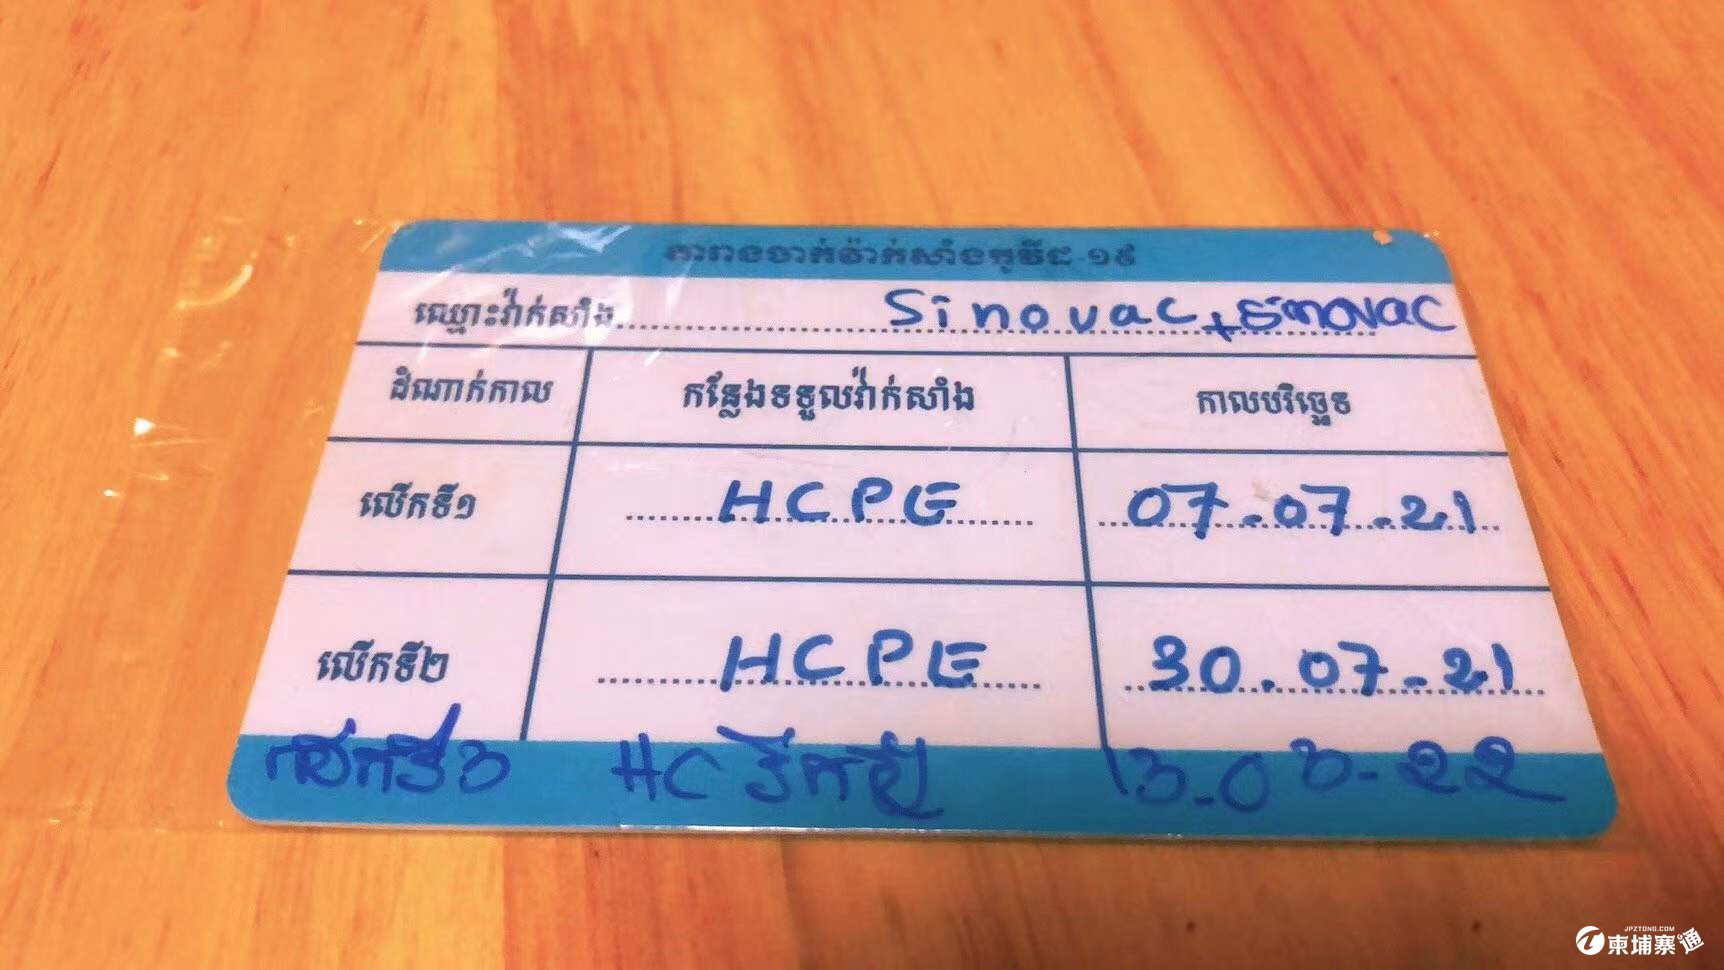 តារាងចាក់វ៉ាក់សាំងកូវីដ-១៩
ឈ្មោះវ៉ាក់សាំង Sinovac + Sinovac
ដំណាក់កាល កន្លែងទទួលវ៉ាក់សាំង កាលបរិច្ឆេទ
លើកទី១ HCPE 07.07.21
លើកទី២ HCPE 30.07.21
លើកទី៦ HC
JPZTONG.COM
柬埔寨通